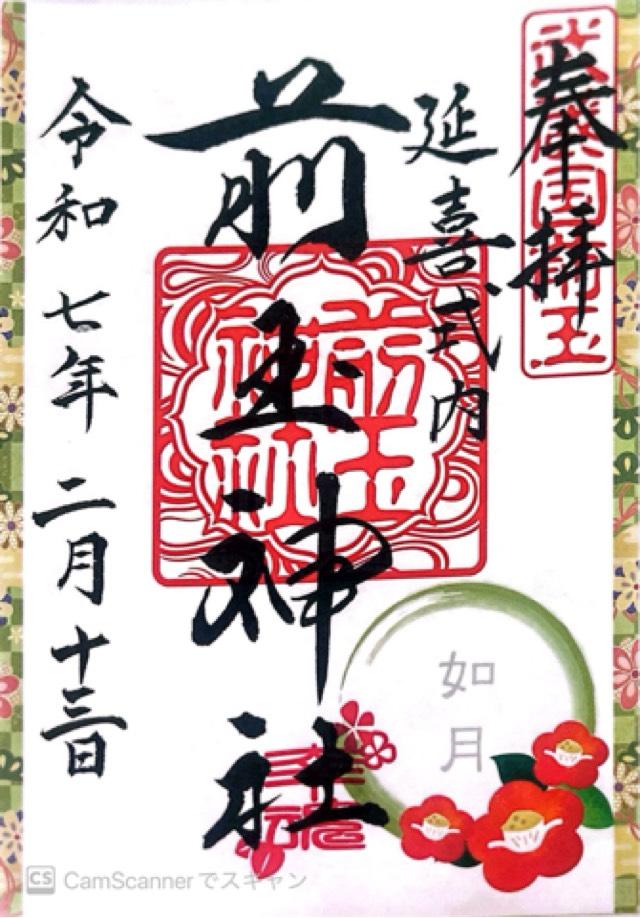 奉拝
武蔵国埼玉
延喜式内
前玉神社
前玉
神社
幸魂
令和七年二月十三日
如月
CS CamScannerでスキャン